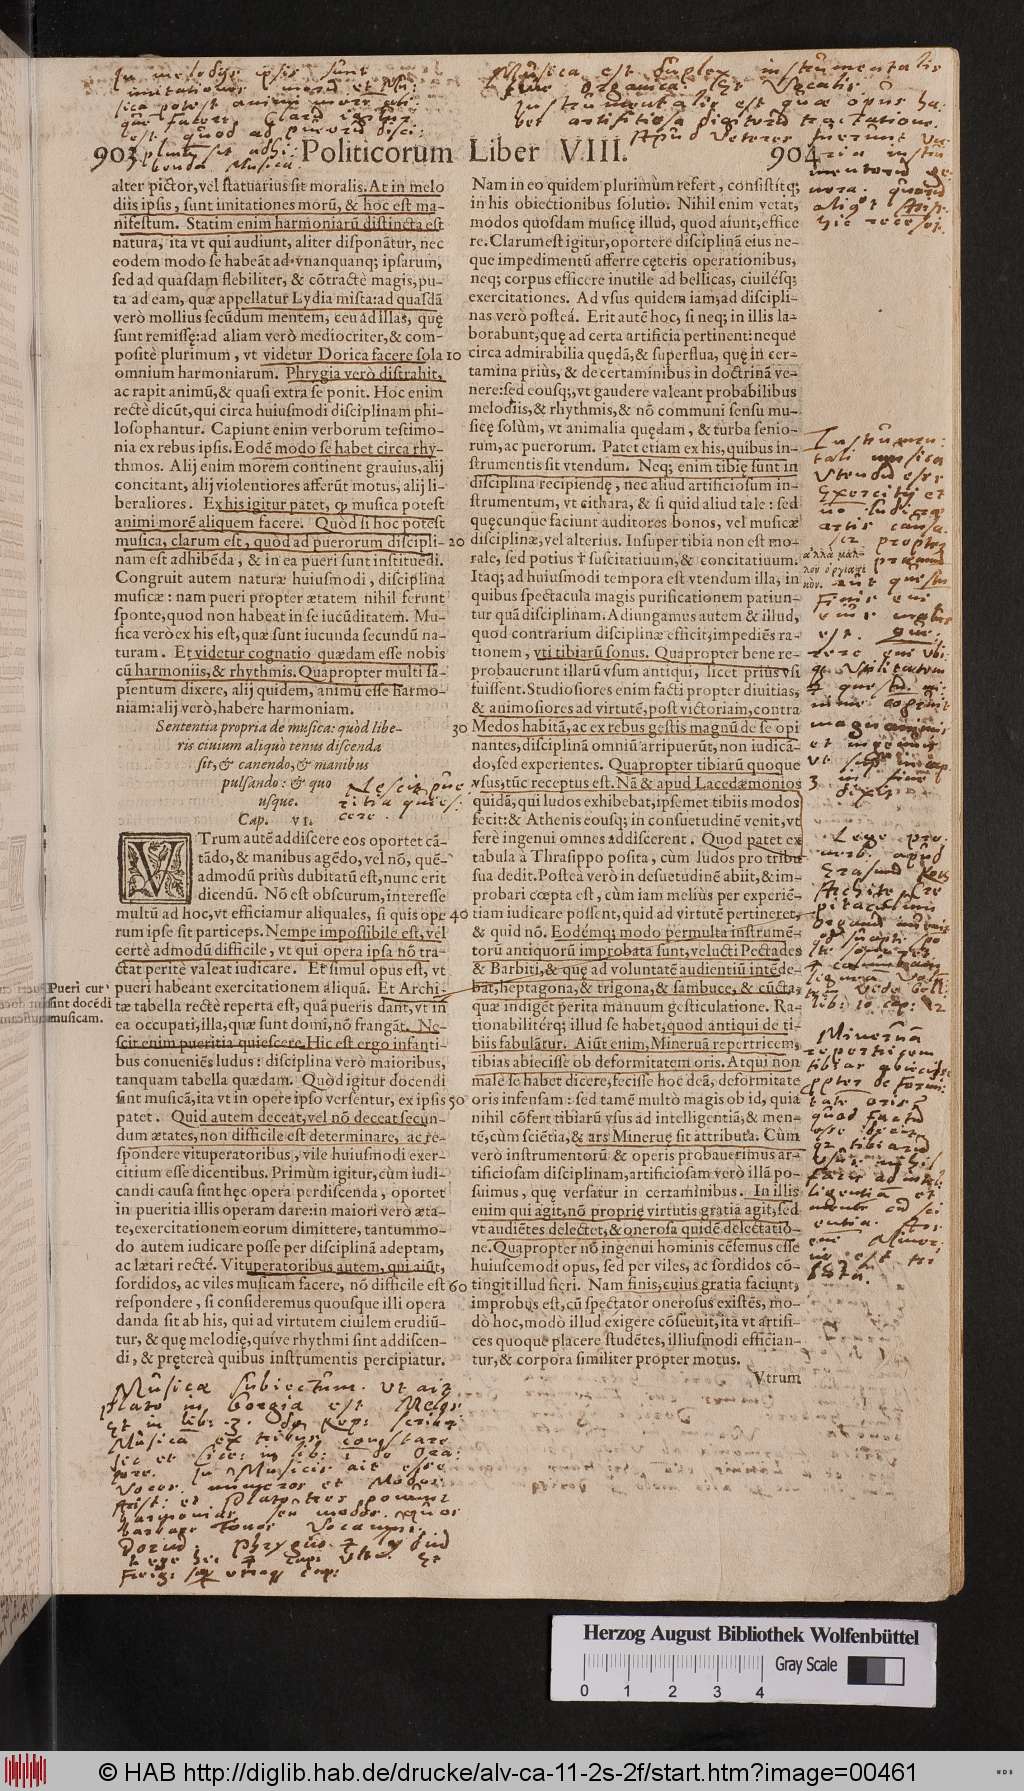 903 Politicorum Liber VIII. 904
In melodijs ipsis sunt
imitationes morũ et Mu-
sica potest animi morẽ ali-
quẽ facere. Clarũ igitur
est quod ad puerorũ disci-
plinã sit adhi-
benda Musica
Musica est duplex instrumentalis
siue organica. Et Vocalis.
Instrumentalis est quae opus ha-
bet artificiosa digitorũ tractatione.
Apud Veteres fuerunt va-
ria instru
mentorũ ge-
nera. quorũ
aliqt Arist.
hic recēset.
alter pictor, vel statuarius sit moralis. At in melo
diis ipsis, sunt imitationes morũ, & hoc est ma-
nifestum. Statim enim harmoniarũ distincta est
natura, ita vt qui audiunt, aliter disponãtur, nec
eodem modo se habeãt ad vnanquanq; ipsarum,
sed ad quasdam flebiliter, & cõtractè magis, pu-
ta ad eam, quæ appellatur Lydia mista: ad quasdã
verò mollius secũdum mentem, ceu ad illas, quę
sunt remissę: ad aliam verò mediocriter, & com-
positè plurimum, vt videtur Dorica facere sola
omnium harmoniarum. Phrygia verò distrahit,
ac rapit animũ, & quasi extra se ponit. Hoc enim
rectè dicũt, qui circa huiusmodi disciplinam phi-
losophantur. Capiunt enim verborum testimo-
nia ex rebus ipsis. Eodẽ modo se habet circa rhy-
thmos. Alij enim morem continent grauius, alij
concitant, alij violentiores afferũt motus, alij li-
beraliores. Ex his igitur patet, ꝙ musica potest
animi morẽ aliquem facere. Quòd si hoc potest
musica, clarum est, quòd ad puerorum discipli-
nam est adhibẽda, & in ea pueri sunt instituẽdi.
Congruit autem naturæ huiusmodi, disciplina
musicæ: nam pueri propter ætatem nihil ferunt
sponte, quod non habeat in se iucũditatem. Mu-
sica verò ex his est, quæ sunt iucunda secundũ na-
turam. Et videtur cognatio quædam esse nobis
cũ harmoniis, & rhythmis. Quapropter multi sa-
pientum dixere, alij quidem, animũ esse harmo-
niam: alij verò, habere harmoniam.
Sententia propria de musica: quòd libe-
ris ciuium aliquo tenus discenda
sit, & canendo, & manibus
pulsando: & quo
usque.
Cap. VI.
Nescit pue
ritia quies-
cere.
VTrum autẽ addiscere eos oportet cã-
tãdo, & manibus agẽdo, vel nõ, quẽ-
admodũ priùs dubitatũ est, nunc erit
dicendũ. Nõ est obscurum, interesse
multũ ad hoc, vt efficiamur aliquales, si quis ope
rum ipse sit particeps. Nempe impossibile est, vel
certè admodũ difficile, vt qui opera ipsa nõ tra-
ctat peritè valeat iudicare. Et simul opus est, vt
pueri habeant exercitationem aliquã. Et Archi-
tæ tabella rectè reperta est, quã pueris dant, vt in
ea occupati, illa, quæ sunt domi, nõ frangãt. Ne-
scit enim pueritia quiescere. Hic est ergo infanti-
bus conueniẽs ludus: disciplina verò maioribus,
tanquam tabella quædam. Quòd igitur docendi
sint musicã, ita vt in opere ipso versentur, ex ipsis
patet. Quid autem deceat, vel nõ deceat secun-
dum ætates, non difficile est determinare, ac re-
spondere vituperatoribus, vile huiusmodi exer-
citium esse dicentibus. Primùm igitur, cùm iudi-
candi causa sint hęc opera perdiscenda, oportet
in pueritia illis operam dare: in maiori verò æta-
te, exercitationem eorum dimittere, tantummo-
do autem iudicare posse per disciplinã adeptam,
ac lætari rectè. Vituperatoribus autem, qui aiũt,
sordidos, ac viles musicam facere, nõ difficile est
respondere, si consideremus quousque illi opera
danda sit ab his, qui ad virtutem ciuilem erudiũ-
tur, & quę melodię, quíve rhythmi sint addiscen-
di, & prętereà quibus instrumentis percipiatur.
Pueri cur
sint docẽdi
musicam.
10
20
30
40
50
60
Nam in eo quidem plurimùm refert, consistitq;
in his obiectionibus solutio. Nihil enim vetat,
modos quosdam musicę illud, quod aiunt, effice
re. Clarum est igitur, oportere disciplinã eius ne-
que impedimentũ afferre cęteris operationibus,
neq; corpus efficere inutile ad bellicas, ciuilésq;
exercitationes. Ad vsus quidem iam, ad discipli-
nas verò posteà. Erit autẽ hoc, si neq; in illis la-
borabunt, quę ad certa artificia pertinent: neque
circa admirabilia quędã, & superflua, quę in cer-
tamina priùs, & de certaminibus in doctrinã ve-
nere: sed eousq;, vt gaudere valeant probabilibus
melodiis, & rhythmis, & nõ communi sensu mu-
sicę solùm, vt animalia quędam, & turba senio-
rum, ac puerorum. Patet etiam ex his, quibus in-
strumentis sit vtendum. Neq; enim tibię sunt in
disciplina recipiendę, nec aliud artificiosum in-
strumentum, vt cithara, & si quid aliud tale: sed
quęcunque faciunt auditores bonos, vel musicæ
disciplinæ, vel alterius. Insuper tibia non est mo-
rale, sed potius † suscitatiuum, & concitatiuum.
Itaq; ad huiusmodi tempora est vtendum illa, in
quibus spectacula magis purificationem patiun-
tur quã disciplinam. Adiungamus autem & illud,
quod contrarium disciplinæ efficit, impediẽs ra-
tionem, vti tibiarũ sonus. Quapropter bene re-
probauerunt illarũ vsum antiqui, licet priùs vsi
fuissent. Studiosiores enim facti propter diuitias,
& animosiores ad virtutẽ, post victoriam, contra
Medos habitã, ac ex rebus gestis magnũ de se opi
nantes, disciplinã omniũ arripuerũt, non iudicã-
do, sed experientes. Quapropter tibiarũ quoque
vsus, tũc receptus est. Nã & apud Lacedæmonios
quidã, qui ludos exhibebat, ipsemet tibiis modos
fecit: & Athenis eousq; in consuetudinẽ venit, vt
ferè ingenui omnes addiscerent. Quod patet ex
tabula à Thrasippo posita, cùm ludos pro tribu
sua dedit. Posteà verò in desuetudinẽ abiit, & im-
probari cœpta est, cùm iam meliùs per experiẽ-
tiam iudicare possent, quid ad virtutẽ pertineret,
& quid nõ. Eodémq; modo permulta instrumẽ-
torũ antiquorũ improbata sunt, veluti Pectades
& Barbiti, & quę ad voluntatẽ audientiũ intẽde-
bãt, heptagona, & trigona, & sambucę, & cũcta,
quæ indigẽt perita manuum gesticulatione. Ra-
tionabilitérq; illud se habet, quod antiqui de ti-
biis fabulãtur. Aiũt enim, Mineruã repertricem,
tibias abiecisse ob deformitatem oris. Atqui non
malè se habet dicere, fecisse hoc deã, deformitate
oris infensam: sed tamẽ multò magis ob id, quia
nihil cõfert tibiarũ vsus ad intelligentiã, & men-
tẽ, cùm sciẽtia, & ars Mineruę sit attributa. Cùm
verò instrumentorũ & operis probauerimus ar-
tificiosam disciplinam, artificiosam verò illã po-
suimus, quę versatur in certaminibus. In illis
enim qui agit, nõ propriè virtutis gratia agit, sed
vt audiẽtes delectet, & onerosa quidẽ delectatio-
ne. Quapropter nõ ingenui hominis cẽsemus esse
huiuscemodi opus, sed per viles, ac sordidos cõ-
tingit illud fieri. Nam finis, cuius gratia faciunt,
improbus est, cũ spectator onerosus existẽs, mo-
dò hoc, modò illud exigere cõsueuit, ita vt artifi-
ces quoque placere studẽtes, illiusmodi effician-
tur, & corpora similiter propter motus.
Vtrum
Instrumen-
tali musica
vtendũ esse
Exercitij et
artis causa.
propter
ἀλλὰ μᾶλ-
λον ὀργιαστι
κόν.
Lege pro-
uerb. apud
Erasmũ
Architae Cre
pitaculum
Mineruã
repertricem
tibias abiecisse
propter deformi-
tatẽ oris
quod factũ
esse dicit
qr tibiarũ
vsus nihil
facit ad intel-
ligentiã et
mentẽ cũ sci
entia. Ars
enī Miner-
uę est tri
buta.
Musicae subiectum. vt ait
Plato in Gorgia est Melos
Et in lib: 3. de Rep: scribit
Musicã ex tribus constare
sic et Cice: in lib: de Ora-
tore. In Musicis ait esse
Voces, numeros et Modos
Arist: et Plato tres ponunt
harmonias seu modos. quos
barbare Tonos vocamus.
Doriũ. phrygiũ.
Herzog August Bibliothek Wolfenbüttel
Gray Scale
0 1 2 3 4
© HAB http://diglib.hab.de/drucke/alv-ca-11-2s-2f/start.htm?image=00461